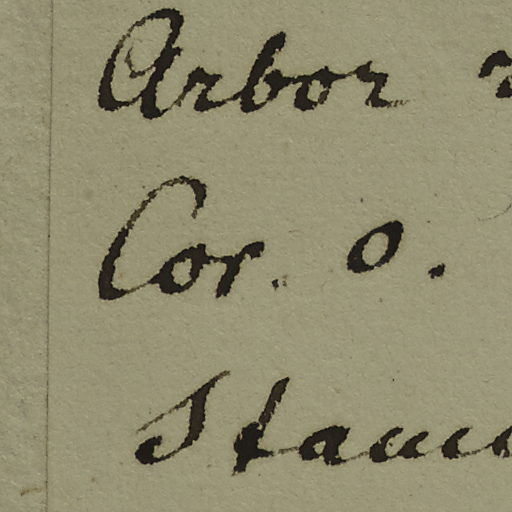 Arbor
Cor. o.
Stam